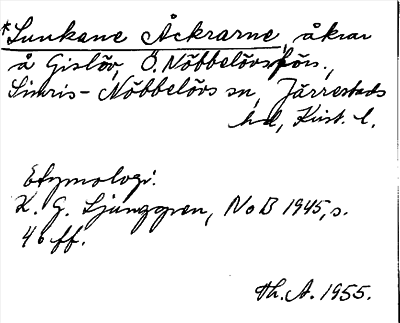 *Sunkane Åckrarne, åkrar
å Gislöv, Ö. Nöbbelövsförs.,
Simris-Nöbbelövs sn, Järrestads
hd, Krist. l.
Etymologi:
K. G. Ljunggren, NoB 1945, s.
46 ff.
Th. A. 1955.